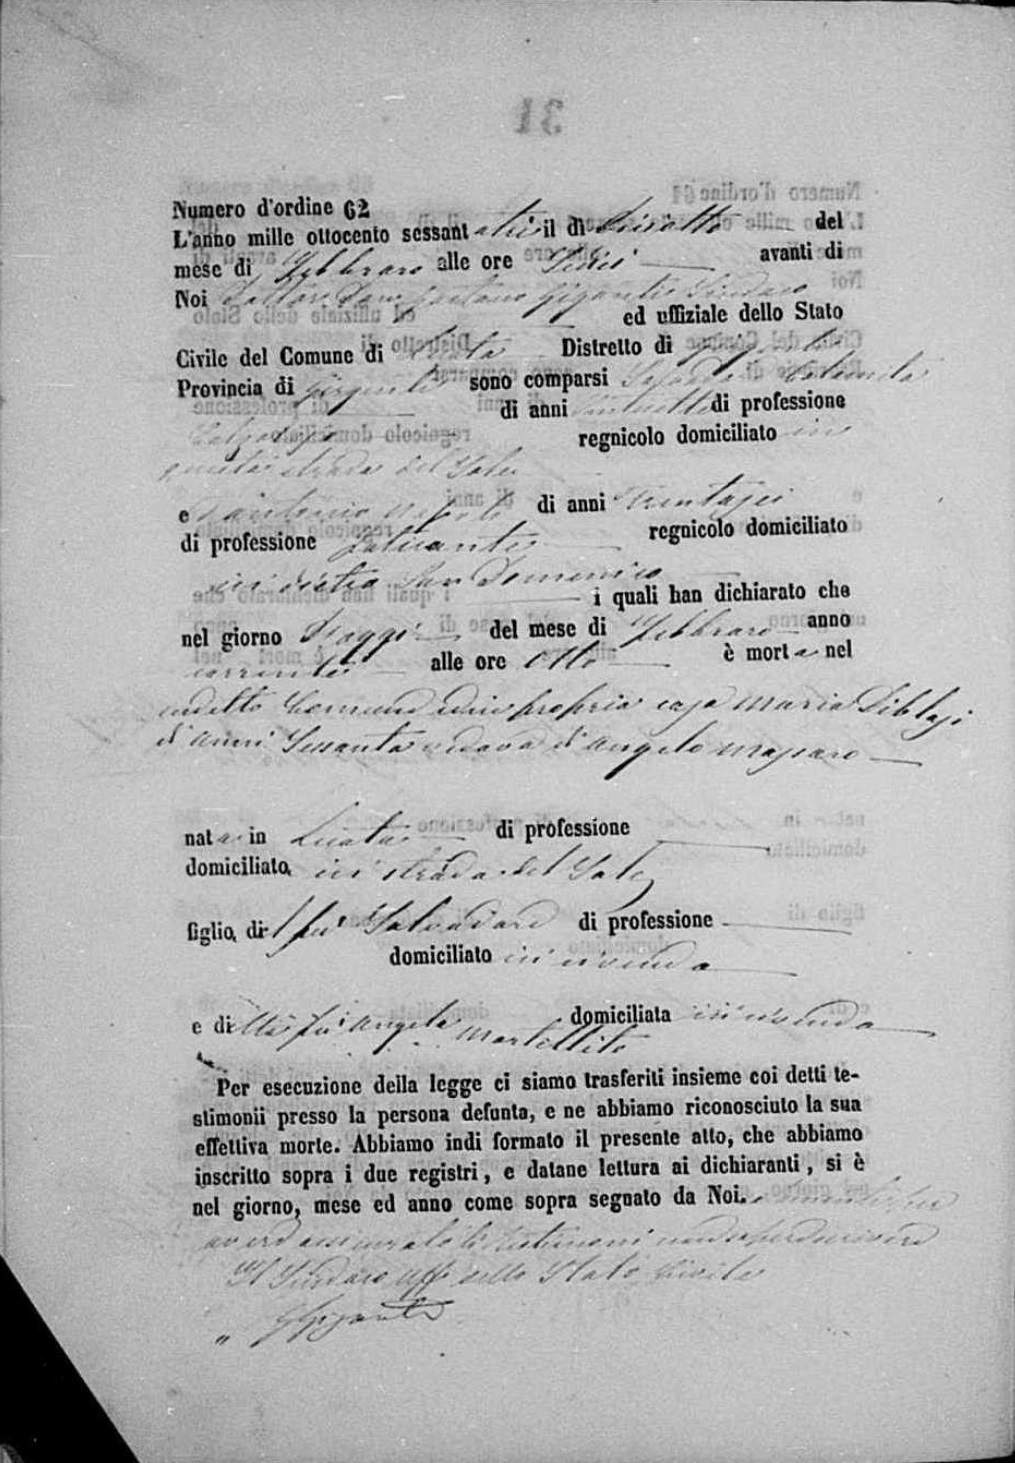 31
Numero d'ordine 62
L'anno mille ottocento sessanta tre il dì Diciotto del
mese di Febbraro alle ore Sedici avanti di
Noi Dottor Don Gaetano Gigante Sindaco
ed uffiziale dello Stato
Civile del Comune di Licata Distretto di Girgenti
Provincia di Girgenti sono comparsi
di anni di professione
regnicolo domiciliato in
questa strada del Sole
e Antonio di anni Trentasei
di professione regnicolo domiciliato
in dietro San Domenico
i quali han dichiarato che
nel giorno d'oggi del mese di Febbraro anno
corrente alle ore Otto è morta nel
sudetto Comune ed in propria casa Maria Diblasi
di anni Sessanta vedova di Angelo Massaro
nata in Licata di professione
domiciliata in strada del Sole
figlia di fu Salvadore di professione
domiciliato in vivenda
e di fu Angela Martellito domiciliata in vivenda
Per esecuzione della legge ci siamo trasferiti insieme coi detti te-
stimonii presso la persona defunta, e ne abbiamo riconosciuto la sua
effettiva morte. Abbiamo indi formato il presente atto, che abbiamo
inscritto sopra i due registri, e datane lettura ai dichiaranti, si è
nel giorno, mese ed anno come sopra segnato da Noi.
li testimoni non saper scrivere
Il Sindaco Uff. dello Stato Civile
G Gigante